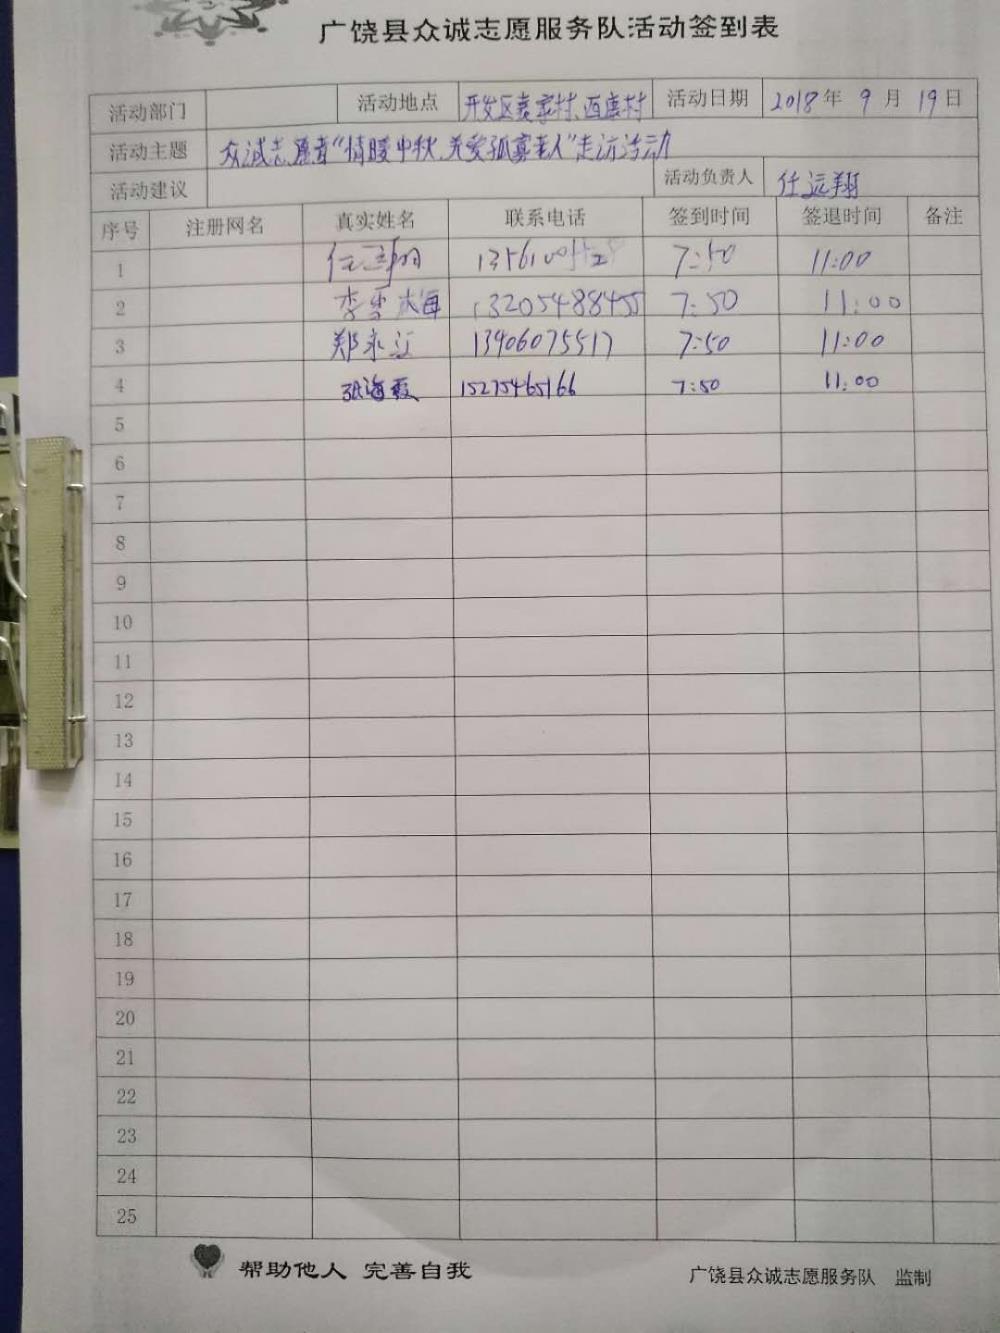 广饶县众诚志愿服务队活动签到表
活动部门 活动地点 开发区 家村、西 村 活动日期 2018年 9月 19日
活动主题 众诚志愿者“情暖中秋、关爱孤寡老人”走访活动
活动建议 活动负责人 任远翔
序号 注册网名 真实姓名 联系电话 签到时间 签退时间 备注
1 7:50 11:00
2 李 海 13205488455 7:50 11:00
3 郑永江 13406075517 7:50 11:00
4 张海霞 15275465166 7:50 11:00
5
6
7
8
9
10
11
12
13
14
15
16
17
18
19
20
21
22
23
24
25
帮助他人 完善自我
广饶县众诚志愿服务队 监制